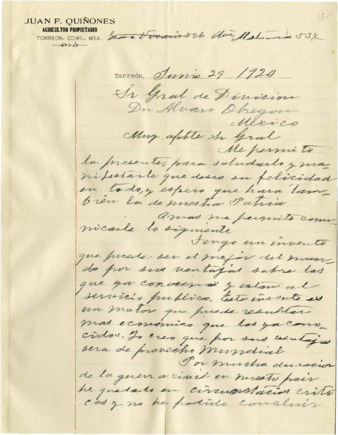 JUAN F. QUIÑONES
AGRICULTOR PROPIETARIO
TORREON, COAH., MEX.
Torreón, Junio 29 1920
Sr Gral de Division
Dn Alvaro Obregon
Mexico
Muy apble Sr Gral
Me permito
la presente, para saludarlo y ma
nifestarle que deseo su felicidad
en todo, y espero que hara tam
bién la de nuestra Patria
Amas me permito comu
nicarle lo siguiente
Tengo un invento
que puede ser el mejor del mun
do por sus ventajas sobre las
que ya conocemos y estan al
servicio publico. Este invento es
un motor que puede resultar
mas economico que los ya cono
cidos. Yo creo que por sus ventajas
sera de provecho Mundial
Por mucha duracion
de la guerra civil en nuestro pais
he quedado en circunstancias criti
cas y no he podido construir